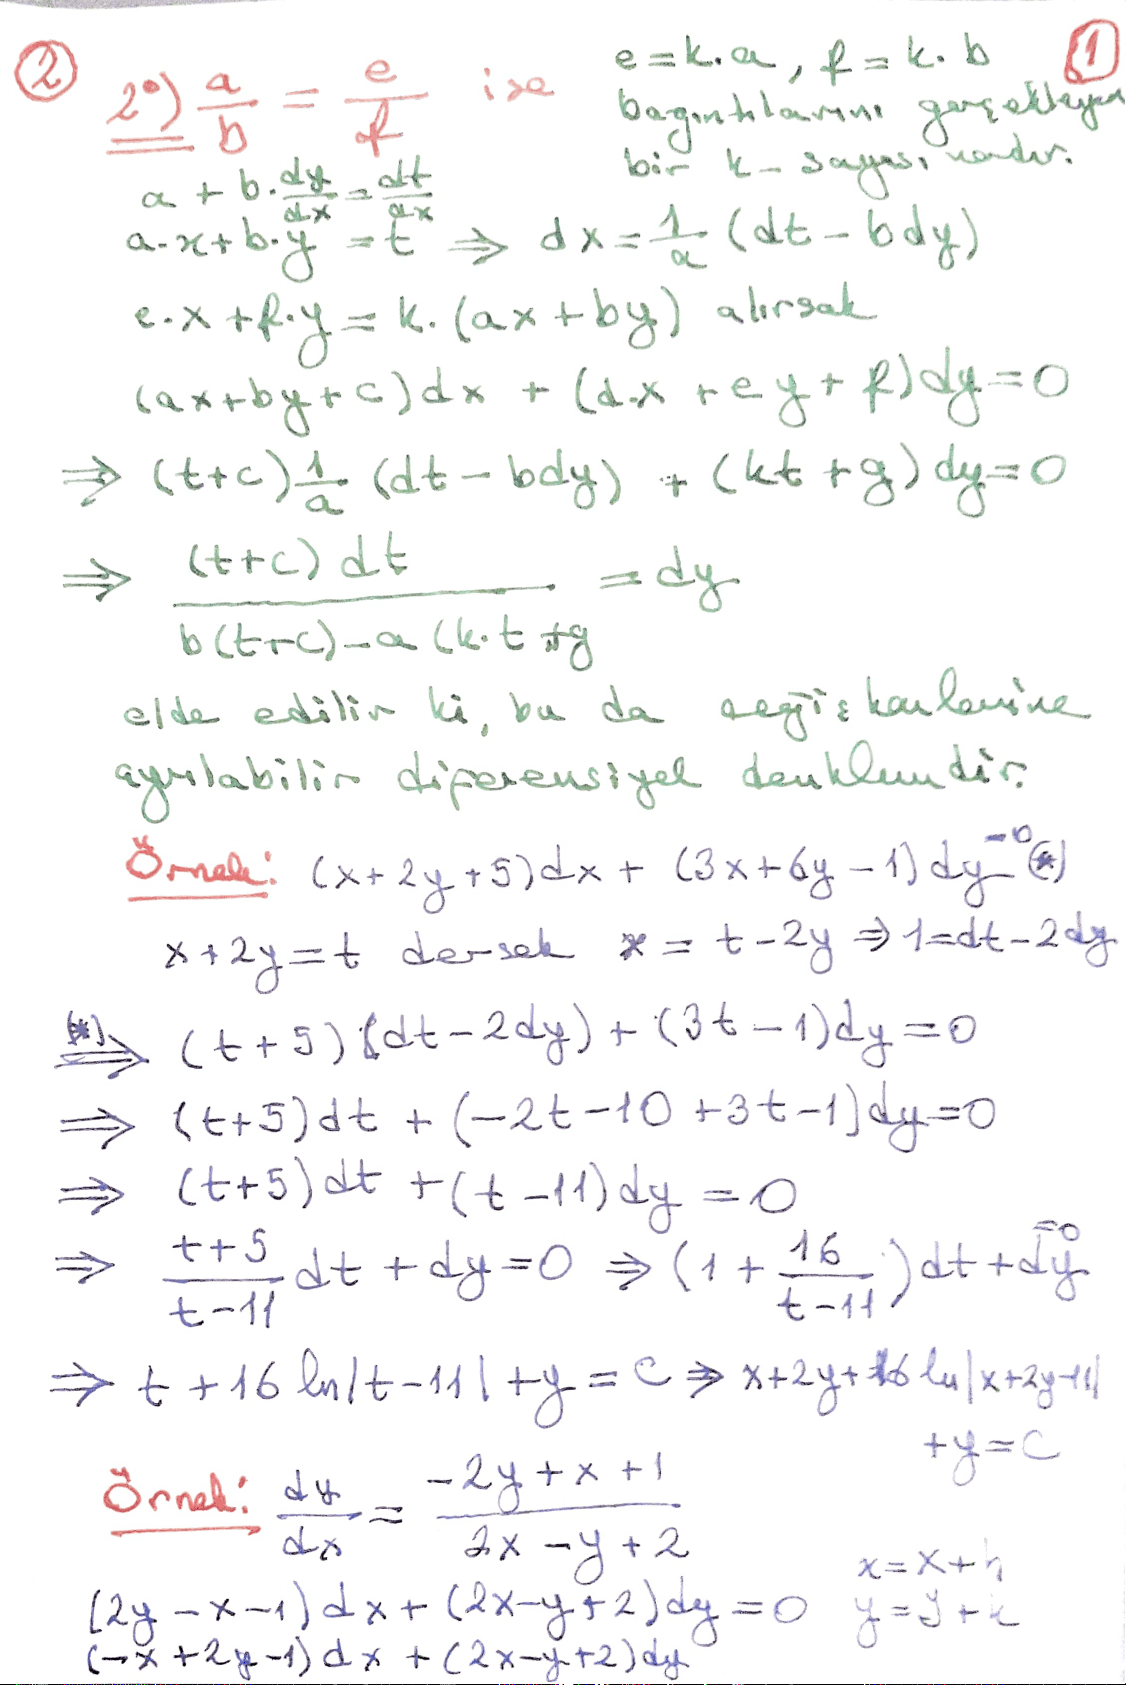 ② 2°) a/b = e/f ise
e = k.a, f = k.b ①
bağıntılarını gerçekleyen
bir k- sayısı vardır.
a + b.dy/dx = dt/dx
a.x + b.y = t ⇒ dx = 1/a (dt - bdy)
e.x + f.y = k.(ax + by) alırsak
(ax+by+c)dx + (d.x + ey + f)dy = 0
⇒ (t+c) 1/a (dt - bdy) + (kt + g) dy = 0
⇒ (t+c) dt / b(t+c) - a (k.t + g = dy
elde edilir ki, bu da değişkenlerine
ayrılabilir diferensiyel denklemdir.
Örnek: (x+2y+5)dx + (3x+6y-1)dy = 0 (*)
x+2y = t dersek x = t-2y ⇒ 1 = dt-2dy
(*) ⇒ (t+5)(dt-2dy) + (3t-1)dy = 0
⇒ (t+5)dt + (-2t-10+3t-1)dy = 0
⇒ (t+5)dt + (t-11)dy = 0
⇒ t+5/t-11 dt + dy = 0 ⇒ (1 + 16/t-11) dt + dy = 0
⇒ t + 16 ln|t-11| + y = C ⇒ x+2y+16 ln|x+2y-11|
+y = C
Örnek: dy/dx = -2y+x+1 / 2x-y+2
x = X + h
(2y-x-1)dx + (2x-y+2)dy = 0
y = Y + k
(-x+2y-1)dx + (2x-y+2)dy